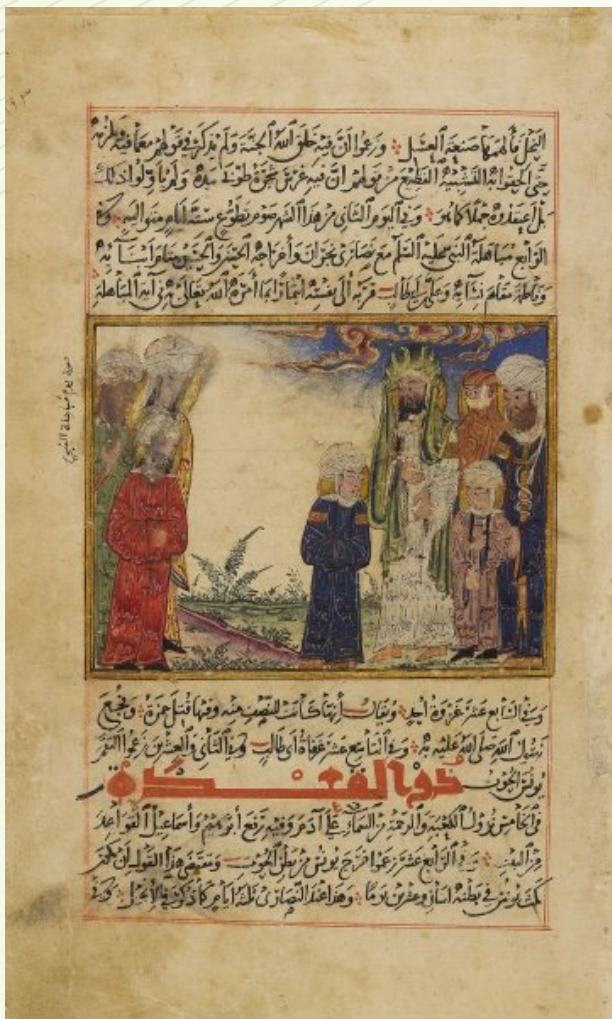 النحل فألهمها صنعة العسل وزعموا أن فيه خلق الله الجنة ولم يذكر في قولهم معما فيه ويلزمه
حتى أكفوا به القضية الفظيع من قولهم أن فيه غرس شجرة طوبى بيده ولم يأولوا ذلك
بل اعتقدوه جهلا كما هو وفي اليوم الثاني من هذا الشهر صوم تطوع ستة أيام متوالية وفي
الرابع مباهلة النبي عليه السلم مع نصارى نجران وإخراجه الحسن والحسين مقام أبنائه
وفاطمة مقام نسائه وعلي بن أبي طالب قربه إلى نفسه ائتمارا بما أمره الله تعالى به في آية المباهلة
صورة يوم مباهلة النبي
وفي السابع عشر غزوة أحد ويقال أنها كانت للنصف منه وفيها قتل حمزة وفجع
رسول الله صلى الله عليه به وفي التاسع عشر وفاة أبي طالب وفي الثاني والعشرين زعموا التقم
يونس الحوت ذو القعدة
في الخامس نزول الكعبة والرحمة من السماء على آدم وفيه رفع إبرهيم وأسماعيل القواعد
من البيت وفي الرابع عشر زعموا خرج يونس من بطن الحوت ومقتضى هذا القول أن يكون
مكث يونس في بطنه اثنان وعشرين يوما وهذا عند النصارى ثلثة أيام كما ذكر في الإنجيل وفي